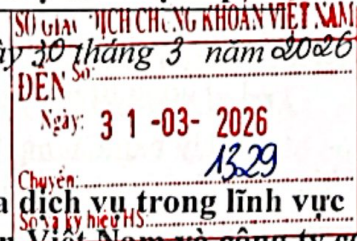 SỞ GIAO DỊCH CHỨNG KHOÁN VIỆT NAM
ày 30 tháng 3 năm 2026
ĐẾN Số:
Ngày: 31-03-2026
1329
Chuyển:
a dịch vụ trong lĩnh vực
Số và ký hiệu HS:
Việt Nam và công ty